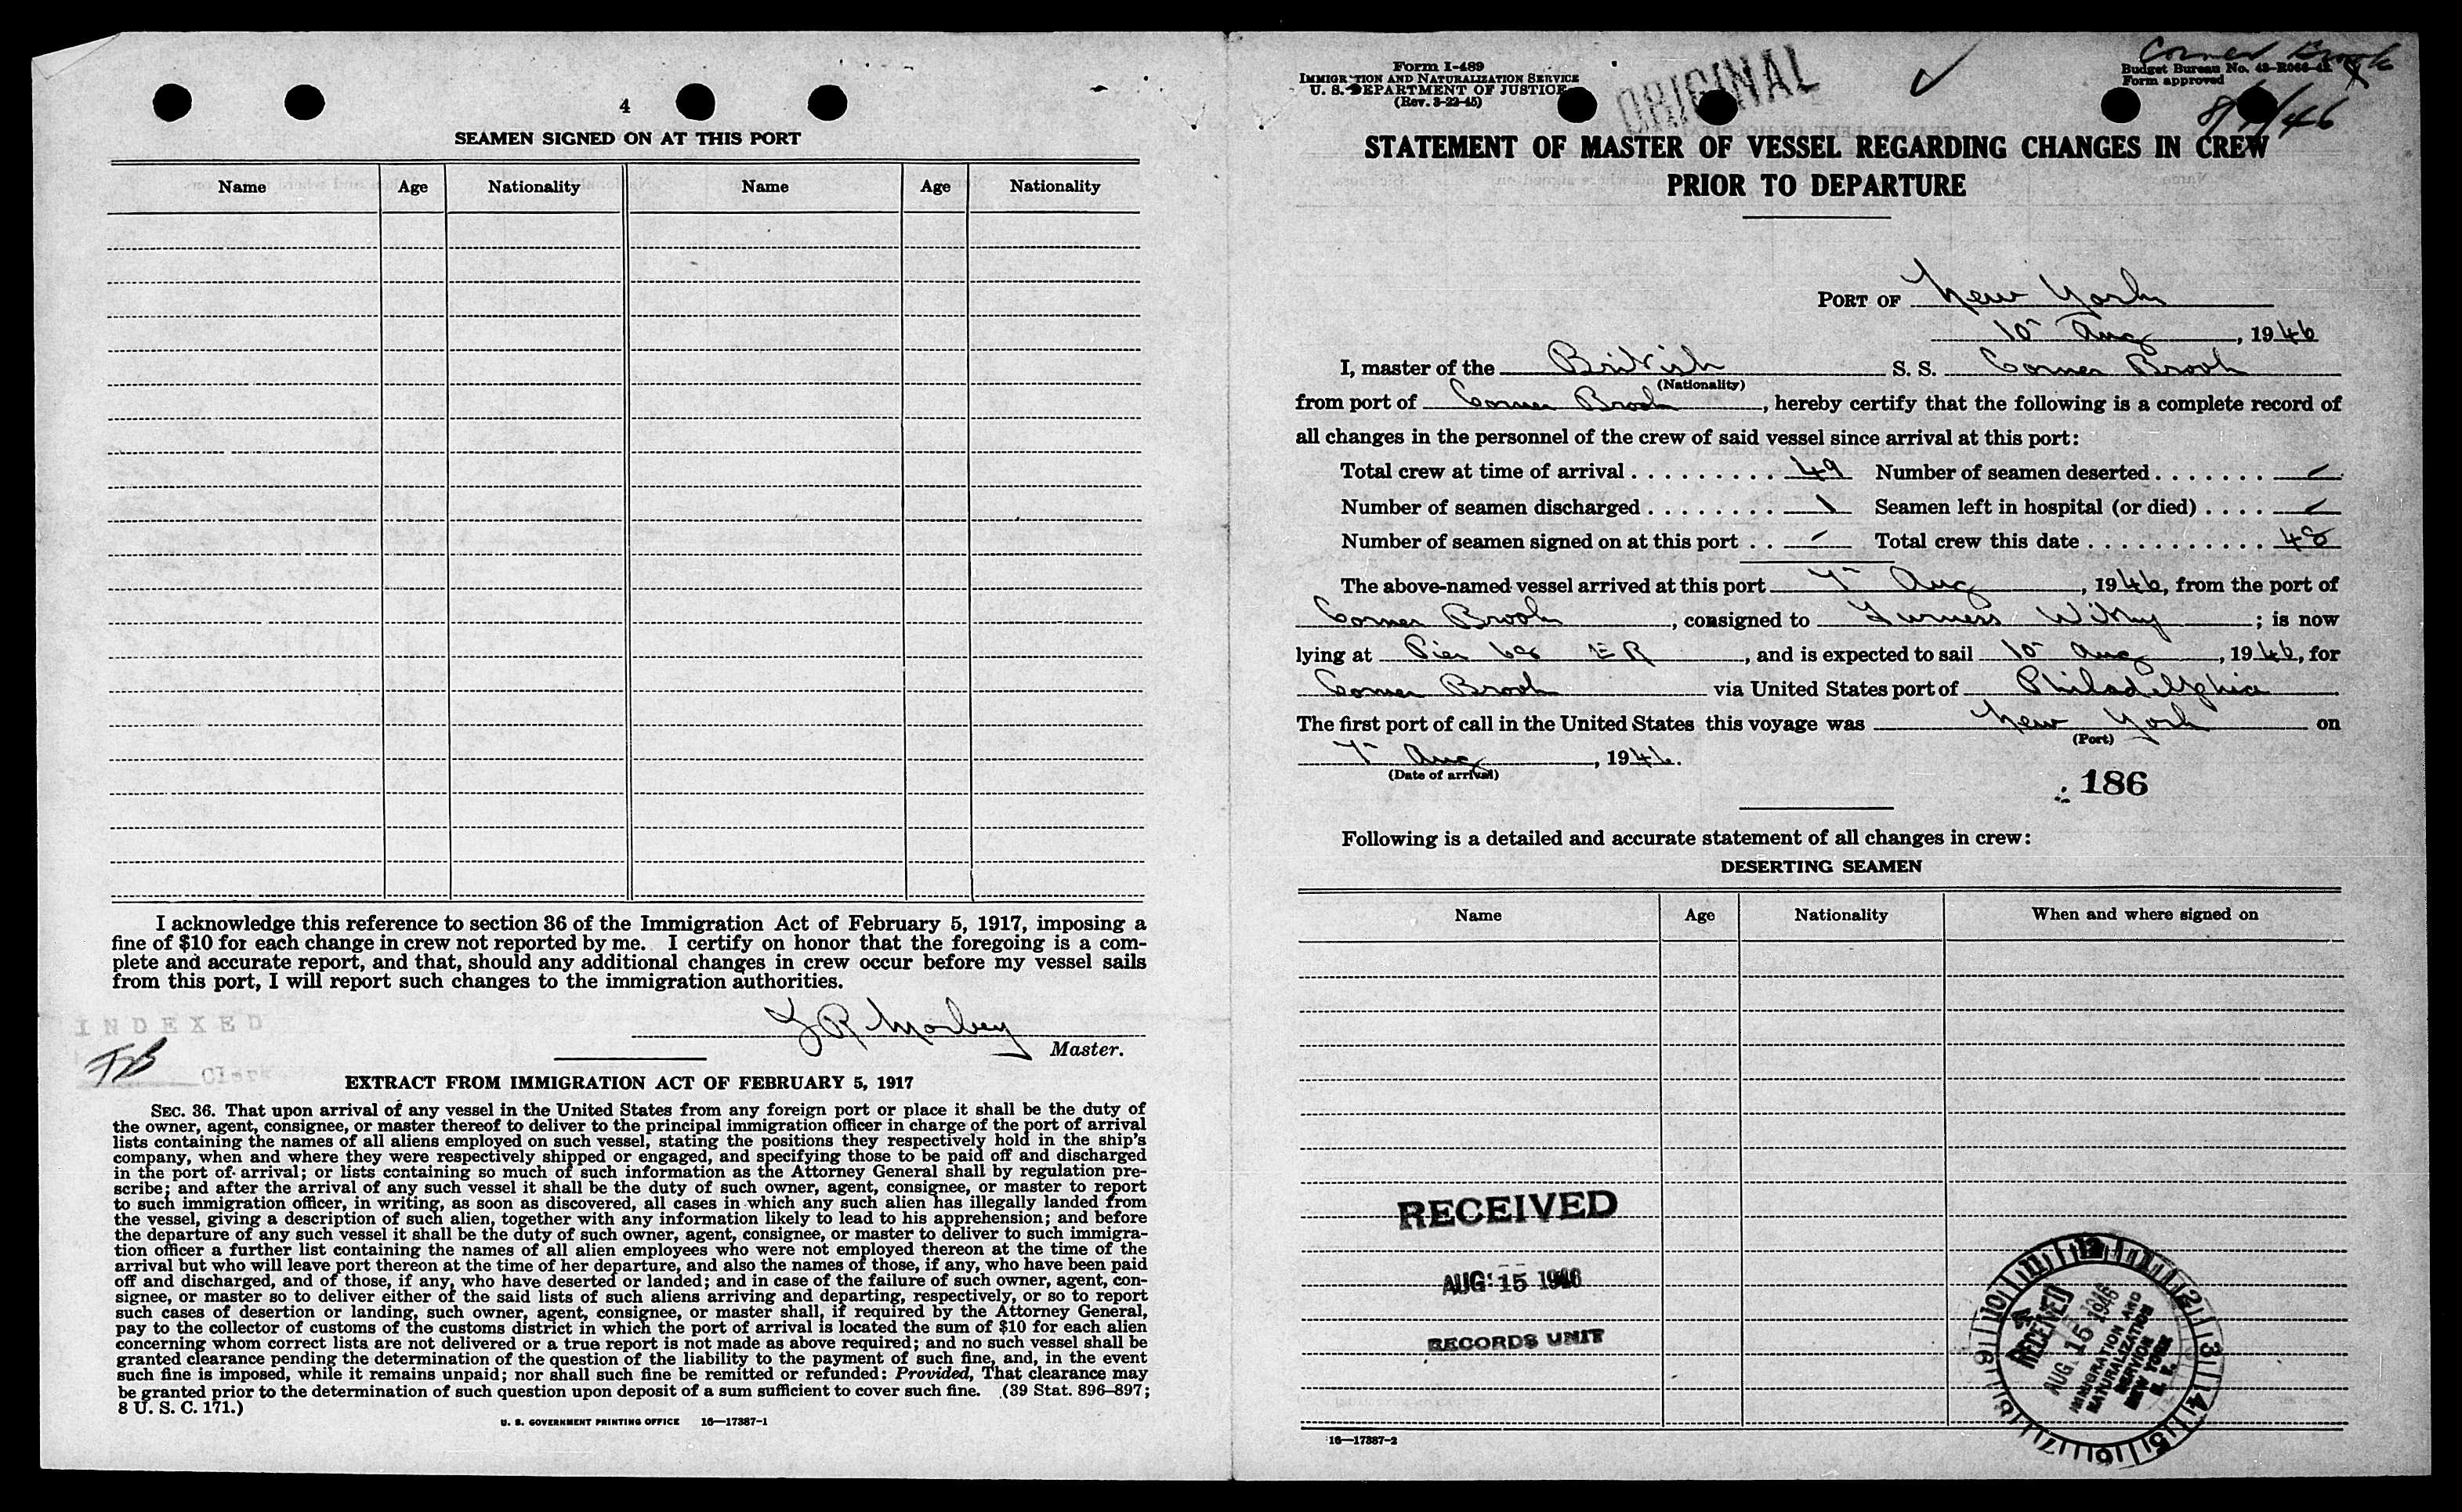 4
SEAMEN SIGNED ON AT THIS PORT
Name Age Nationality Name Age Nationality
I acknowledge this reference to section 36 of the Immigration Act of February 5, 1917, imposing a
fine of $10 for each change in crew not reported by me. I certify on honor that the foregoing is a com-
plete and accurate report, and that, should any additional changes in crew occur before my vessel sails
from this port, I will report such changes to the immigration authorities.
INDEXED
Master.
FB
Clerk
EXTRACT FROM IMMIGRATION ACT OF FEBRUARY 5, 1917
SEC. 36. That upon arrival of any vessel in the United States from any foreign port or place it shall be the duty of
the owner, agent, consignee, or master thereof to deliver to the principal immigration officer in charge of the port of arrival
lists containing the names of all aliens employed on such vessel, stating the positions they respectively hold in the ship's
company, when and where they were respectively shipped or engaged, and specifying those to be paid off and discharged
in the port of arrival; or lists containing so much of such information as the Attorney General shall by regulation pre-
scribe; and after the arrival of any such vessel it shall be the duty of such owner, agent, consignee, or master to report
to such immigration officer, in writing, as soon as discovered, all cases in which any such alien has illegally landed from
the vessel, giving a description of such alien, together with any information likely to lead to his apprehension; and before
the departure of any such vessel it shall be the duty of such owner, agent, consignee, or master to deliver to such immigra-
tion officer a further list containing the names of all alien employees who were not employed thereon at the time of the
arrival but who will leave port thereon at the time of her departure, and also the names of those, if any, who have been paid
off and discharged, and of those, if any, who have deserted or landed; and in case of the failure of such owner, agent, con-
signee, or master so to deliver either of the said lists of such aliens arriving and departing, respectively, or so to report
such cases of desertion or landing, such owner, agent, consignee, or master shall, if required by the Attorney General,
pay to the collector of customs of the customs district in which the port of arrival is located the sum of $10 for each alien
concerning whom correct lists are not delivered or a true report is not made as above required; and no such vessel shall be
granted clearance pending the determination of the question of the liability to the payment of such fine, and, in the event
such fine is imposed, while it remains unpaid; nor shall such fine be remitted or refunded: Provided, That clearance may
be granted prior to the determination of such question upon deposit of a sum sufficient to cover such fine. (39 Stat. 896–897;
8 U. S. C. 171.)
U. S. GOVERNMENT PRINTING OFFICE 16—17387-1
Corner Brook
Form I-489
IMMIGRATION AND NATURALIZATION SERVICE
U. S. DEPARTMENT OF JUSTICE
(Rev. 3-22-45)
ORIGINAL
Budget Bureau No. 43-R066-42
Form approved
8/7/46
STATEMENT OF MASTER OF VESSEL REGARDING CHANGES IN CREW
PRIOR TO DEPARTURE
PORT OF New York
10 Aug, 1946
I, master of the British S. S. Corner Brook
(Nationality)
from port of Corner Brook, hereby certify that the following is a complete record of
all changes in the personnel of the crew of said vessel since arrival at this port:
Total crew at time of arrival 49 Number of seamen deserted
Number of seamen discharged 1 Seamen left in hospital (or died)
Number of seamen signed on at this port Total crew this date 48
The above-named vessel arrived at this port 7 Aug, 1946, from the port of
Corner Brook, consigned to Furness Withy; is now
lying at Pier 68 ER, and is expected to sail 10 Aug, 1946, for
Corner Brook via United States port of Philadelphia
The first port of call in the United States this voyage was New York on
(Port)
7 Aug, 1946.
(Date of arrival)
186
Following is a detailed and accurate statement of all changes in crew:
DESERTING SEAMEN
Name Age Nationality When and where signed on
RECEIVED
AUG 15 1946
RECORDS UNIT
RECEIVED
AUG 15 1946
IMMIGRATION AND
NATURALIZATION
SERVICE
NEW YORK
N. Y.
16—17387-2